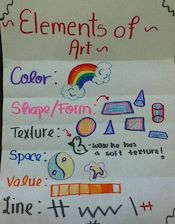 ~ Elements of ~
Art ~
Color:
Shape/Form:
Texture: - wow he has
a soft texture!
Space:
Value:
Line: